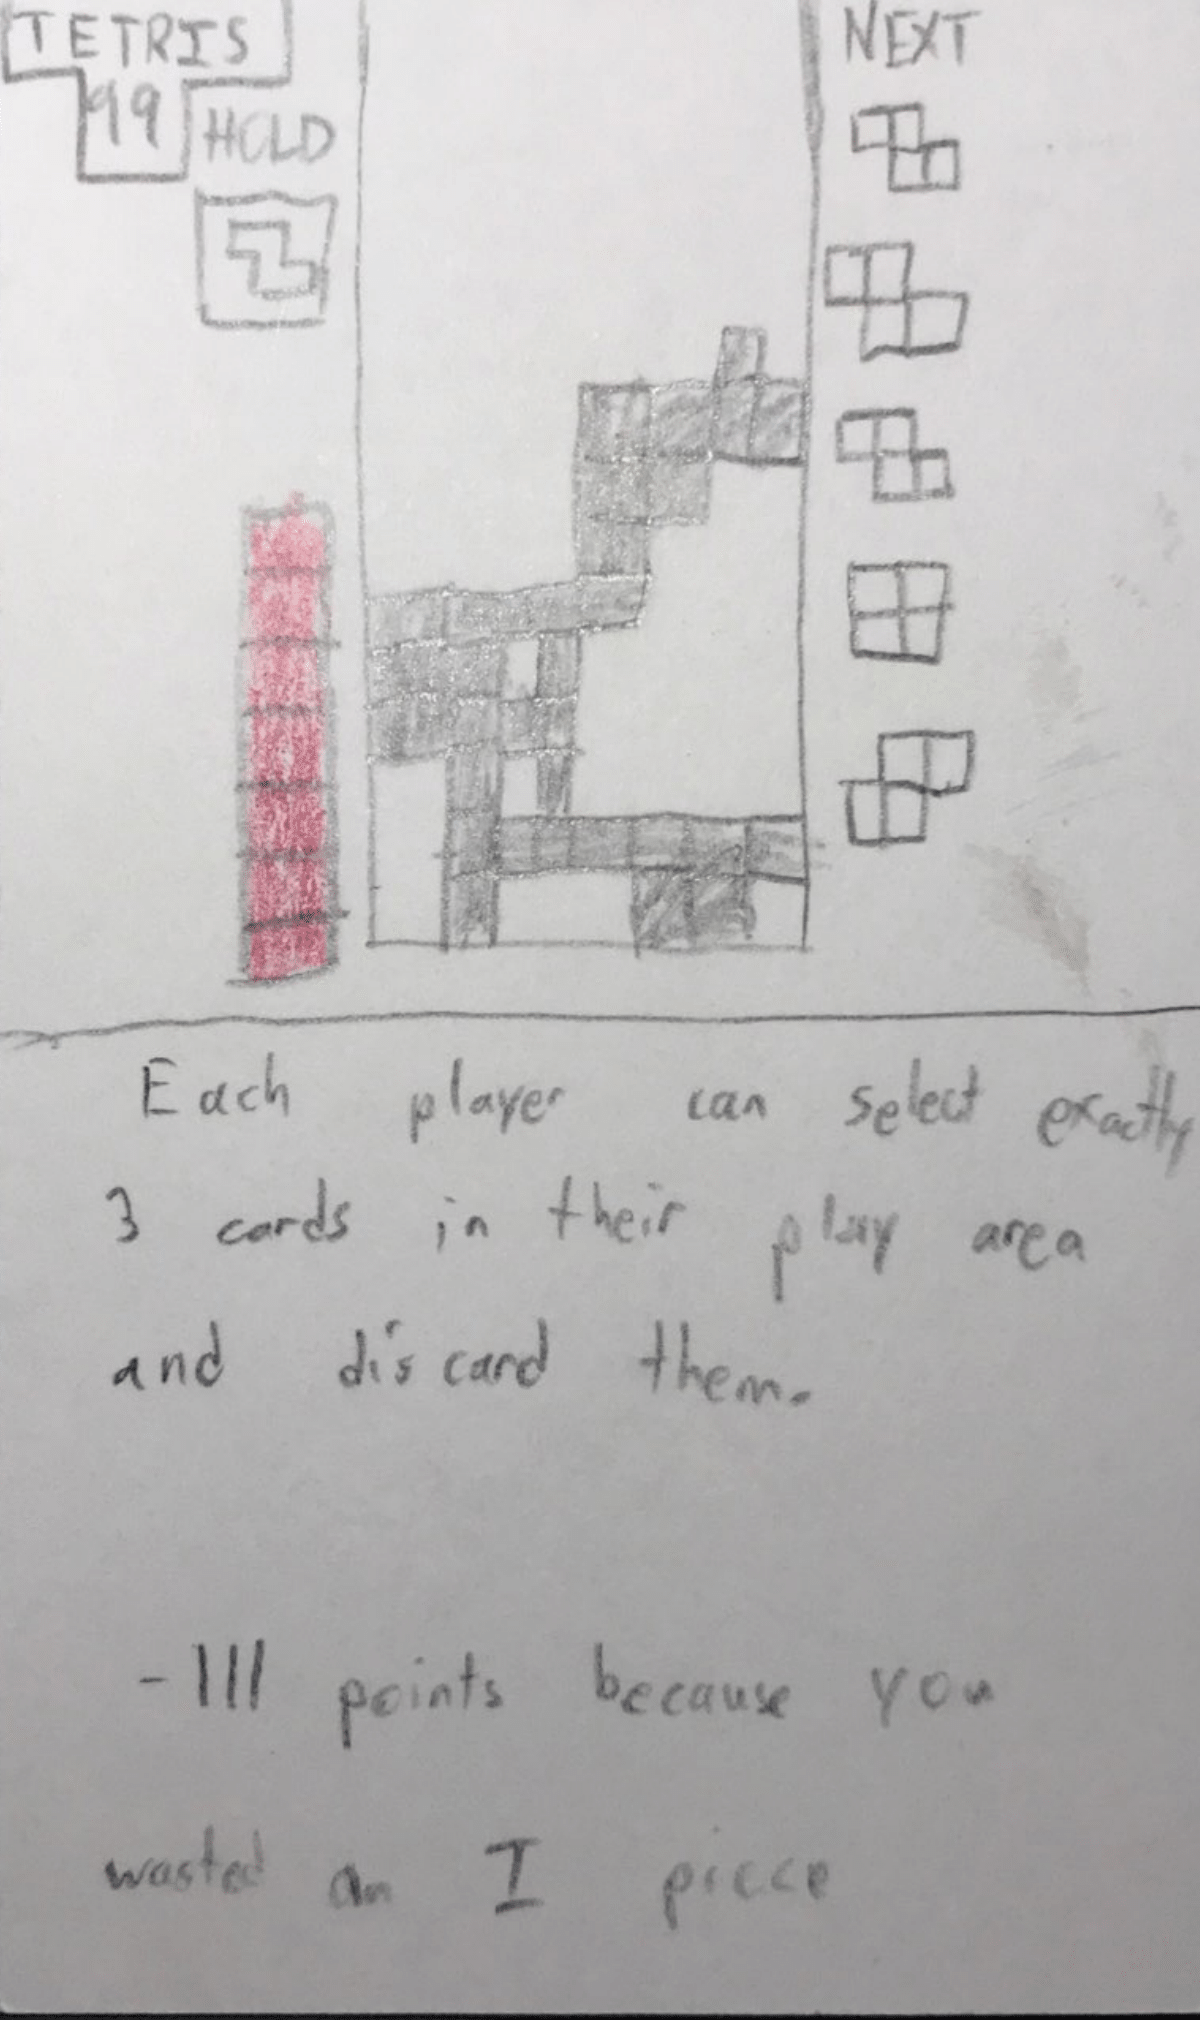 TETRIS
99
HOLD
NEXT
Each player can select exactly
3 cards in their play area
and discard them.
-111 points because you
wasted an I piece